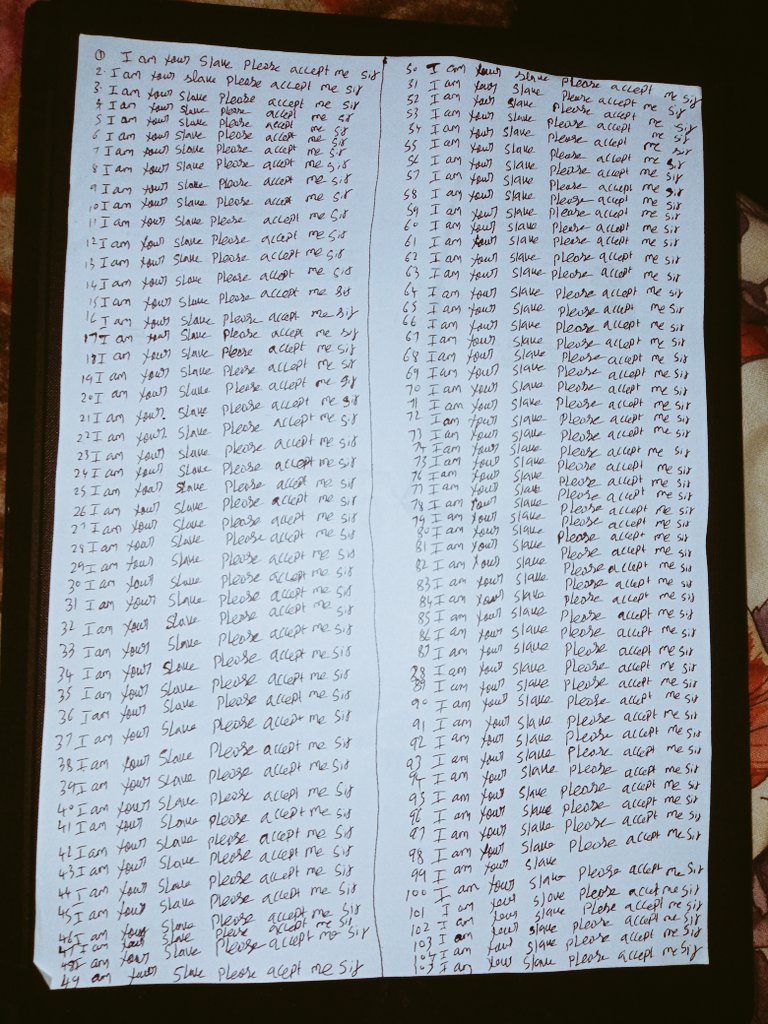 1 I am Your Slave Please accept me sir
2. I am Your Slave Please accept me sir
3. I am Your Slave Please accept me sir
4 I am Your Slave Please accept me sir
5 I am Your Slave Please accept me sir
6 I am Your Slave Please accept me sir
7 I am Your Slave Please accept me sir
8 I am Your Slave Please accept me sir
9 I am Your Slave Please accept me sir
10 I am Your Slave Please accept me sir
11 I am Your Slave Please accept me sir
12 I am Your Slave Please accept me sir
13 I am Your Slave Please accept me sir
14 I am Your Slave Please accept me sir
15 I am Your Slave Please accept me sir
16 I am Your Slave Please accept me sir
17 I am Your Slave Please accept me sir
18 I am Your Slave Please accept me sir
19 I am Your Slave Please accept me sir
20 I am Your Slave Please accept me sir
21 I am Your Slave Please accept me sir
22 I am Your Slave Please accept me sir
23 I am Your Slave Please accept me sir
24 I am Your Slave Please accept me sir
25 I am Your Slave Please accept me sir
26 I am Your Slave Please accept me sir
27 I am Your Slave Please accept me sir
28 I am Your Slave Please accept me sir
29 I am Your Slave Please accept me sir
30 I am Your Slave Please accept me sir
31 I am Your Slave Please accept me sir
32 I am Your Slave Please accept me sir
33 I am Your Slave Please accept me sir
34 I am Your Slave Please accept me sir
35 I am Your Slave Please accept me sir
36 I am Your Slave Please accept me sir
37 I am Your Slave Please accept me sir
38 I am Your Slave Please accept me sir
39 I am Your Slave Please accept me sir
40 I am Your Slave Please accept me sir
41 I am Your Slave Please accept me sir
42 I am Your Slave Please accept me sir
43 I am Your Slave Please accept me sir
44 I am Your Slave Please accept me sir
45 I am Your Slave Please accept me sir
46 I am Your Slave Please accept me sir
47 I am Your Slave Please accept me sir
48 I am Your Slave Please accept me sir
49 am Your Slave Please accept me sir
50 I am Your Slave Please accept me sir
51 I am Your Slave Please accept me sir
52 I am Your Slave Please accept me sir
53 I am Your Slave Please accept me sir
54 I am Your Slave Please accept me sir
55 I am Your Slave Please accept me sir
56 I am Your Slave Please accept me sir
57 I am Your Slave Please accept me sir
58 I am Your Slave Please accept me sir
59 I am Your Slave Please accept me sir
60 I am Your Slave Please accept me sir
61 I am Your Slave Please accept me sir
62 I am Your Slave Please accept me sir
63 I am Your Slave Please accept me sir
64 I am Your Slave Please accept me sir
65 I am Your Slave Please accept me sir
66 I am Your Slave Please accept me sir
67 I am Your Slave Please accept me sir
68 I am Your Slave Please accept me sir
69 I am Your Slave Please accept me sir
70 I am Your Slave Please accept me sir
71 I am Your Slave Please accept me sir
72 I am Your Slave Please accept me sir
73 I am Your Slave Please accept me sir
74 I am Your Slave Please accept me sir
75 I am Your Slave Please accept me sir
76 I am Your Slave Please accept me sir
77 I am Your Slave Please accept me sir
78 I am Your Slave Please accept me sir
79 I am Your Slave Please accept me sir
80 I am Your Slave Please accept me sir
81 I am Your Slave Please accept me sir
82 I am Your Slave Please accept me sir
83 I am Your Slave Please accept me sir
84 I am Your Slave Please accept me sir
85 I am Your Slave Please accept me sir
86 I am Your Slave Please accept me sir
87 I am Your Slave Please accept me sir
88 I am Your Slave Please accept me sir
89 I am Your Slave Please accept me sir
90 I am Your Slave Please accept me sir
91 I am Your Slave Please accept me sir
92 I am Your Slave Please accept me sir
93 I am Your Slave Please accept me sir
94 I am Your Slave Please accept me sir
95 I am Your Slave Please accept me sir
96 I am Your Slave Please accept me sir
97 I am Your Slave Please accept me sir
98 I am Your Slave Please accept me sir
99 I am Your Slave
100 I am Your Slave Please accept me sir
101 I am Your Slave Please accept me sir
102 I am Your Slave Please accept me sir
103 I am Your Slave Please accept me sir
104 I am Your Slave Please accept me sir
105 I am Your Slave Please accept me sir